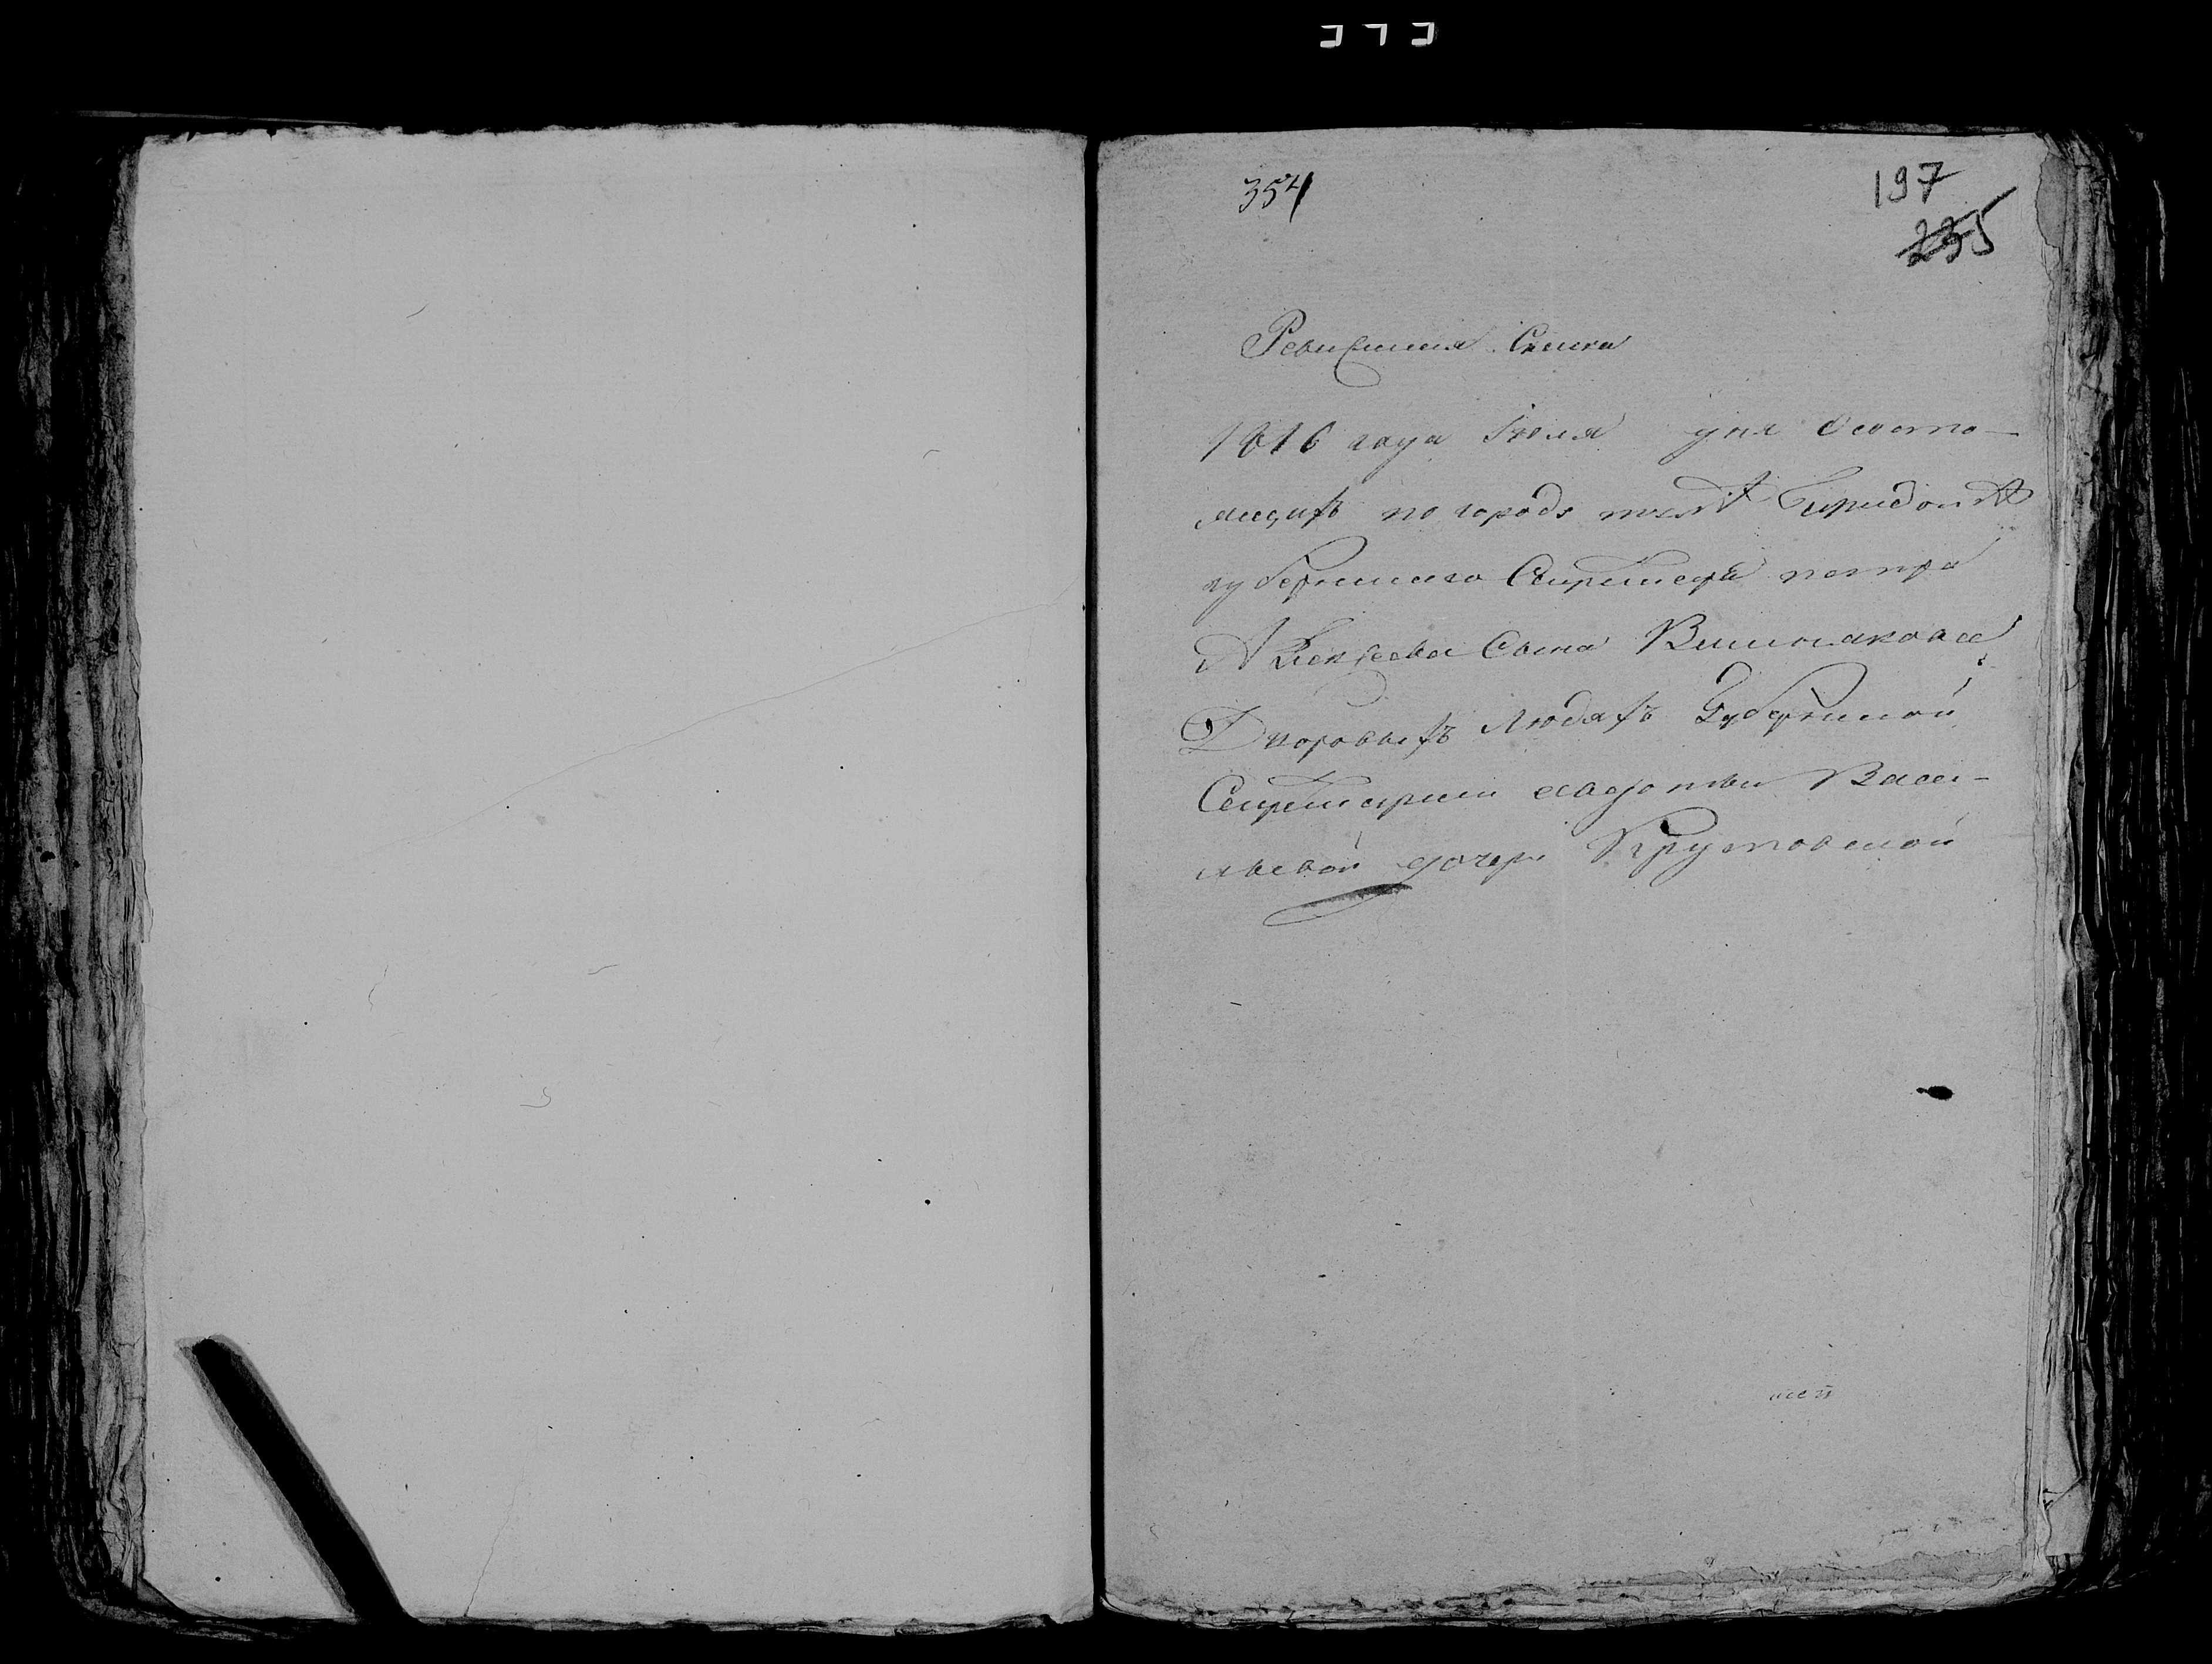 354
197
235
Ревизская Сказка
1816 года Июля дня о состо-
ящихъ по городу
губернскаго Секретаря петра
Алексеева Сына Вишнякова
Дворовыхъ людяхъ Губернской
Секретарши авдотьи Васи-
льевой дочери Крутовской